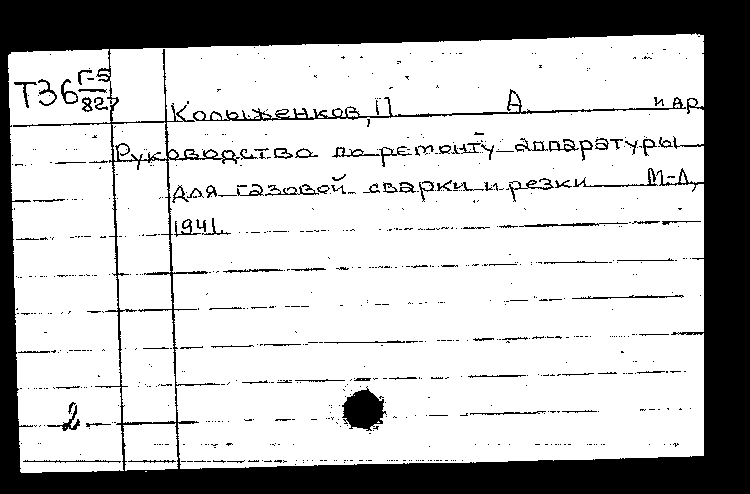 Т36 Г-5
827
Колыженков, П А. и др.
Руководство по ремонту аппаратуры
для газовой сварки и резки М-Л,
1941.
2.